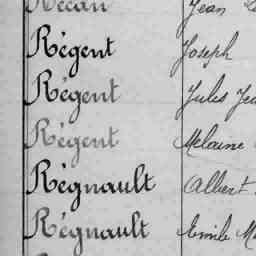 Récan Jean
Régent Joseph
Régent Jules
Régent Melaine
Régnault Albert
Régnault Emile